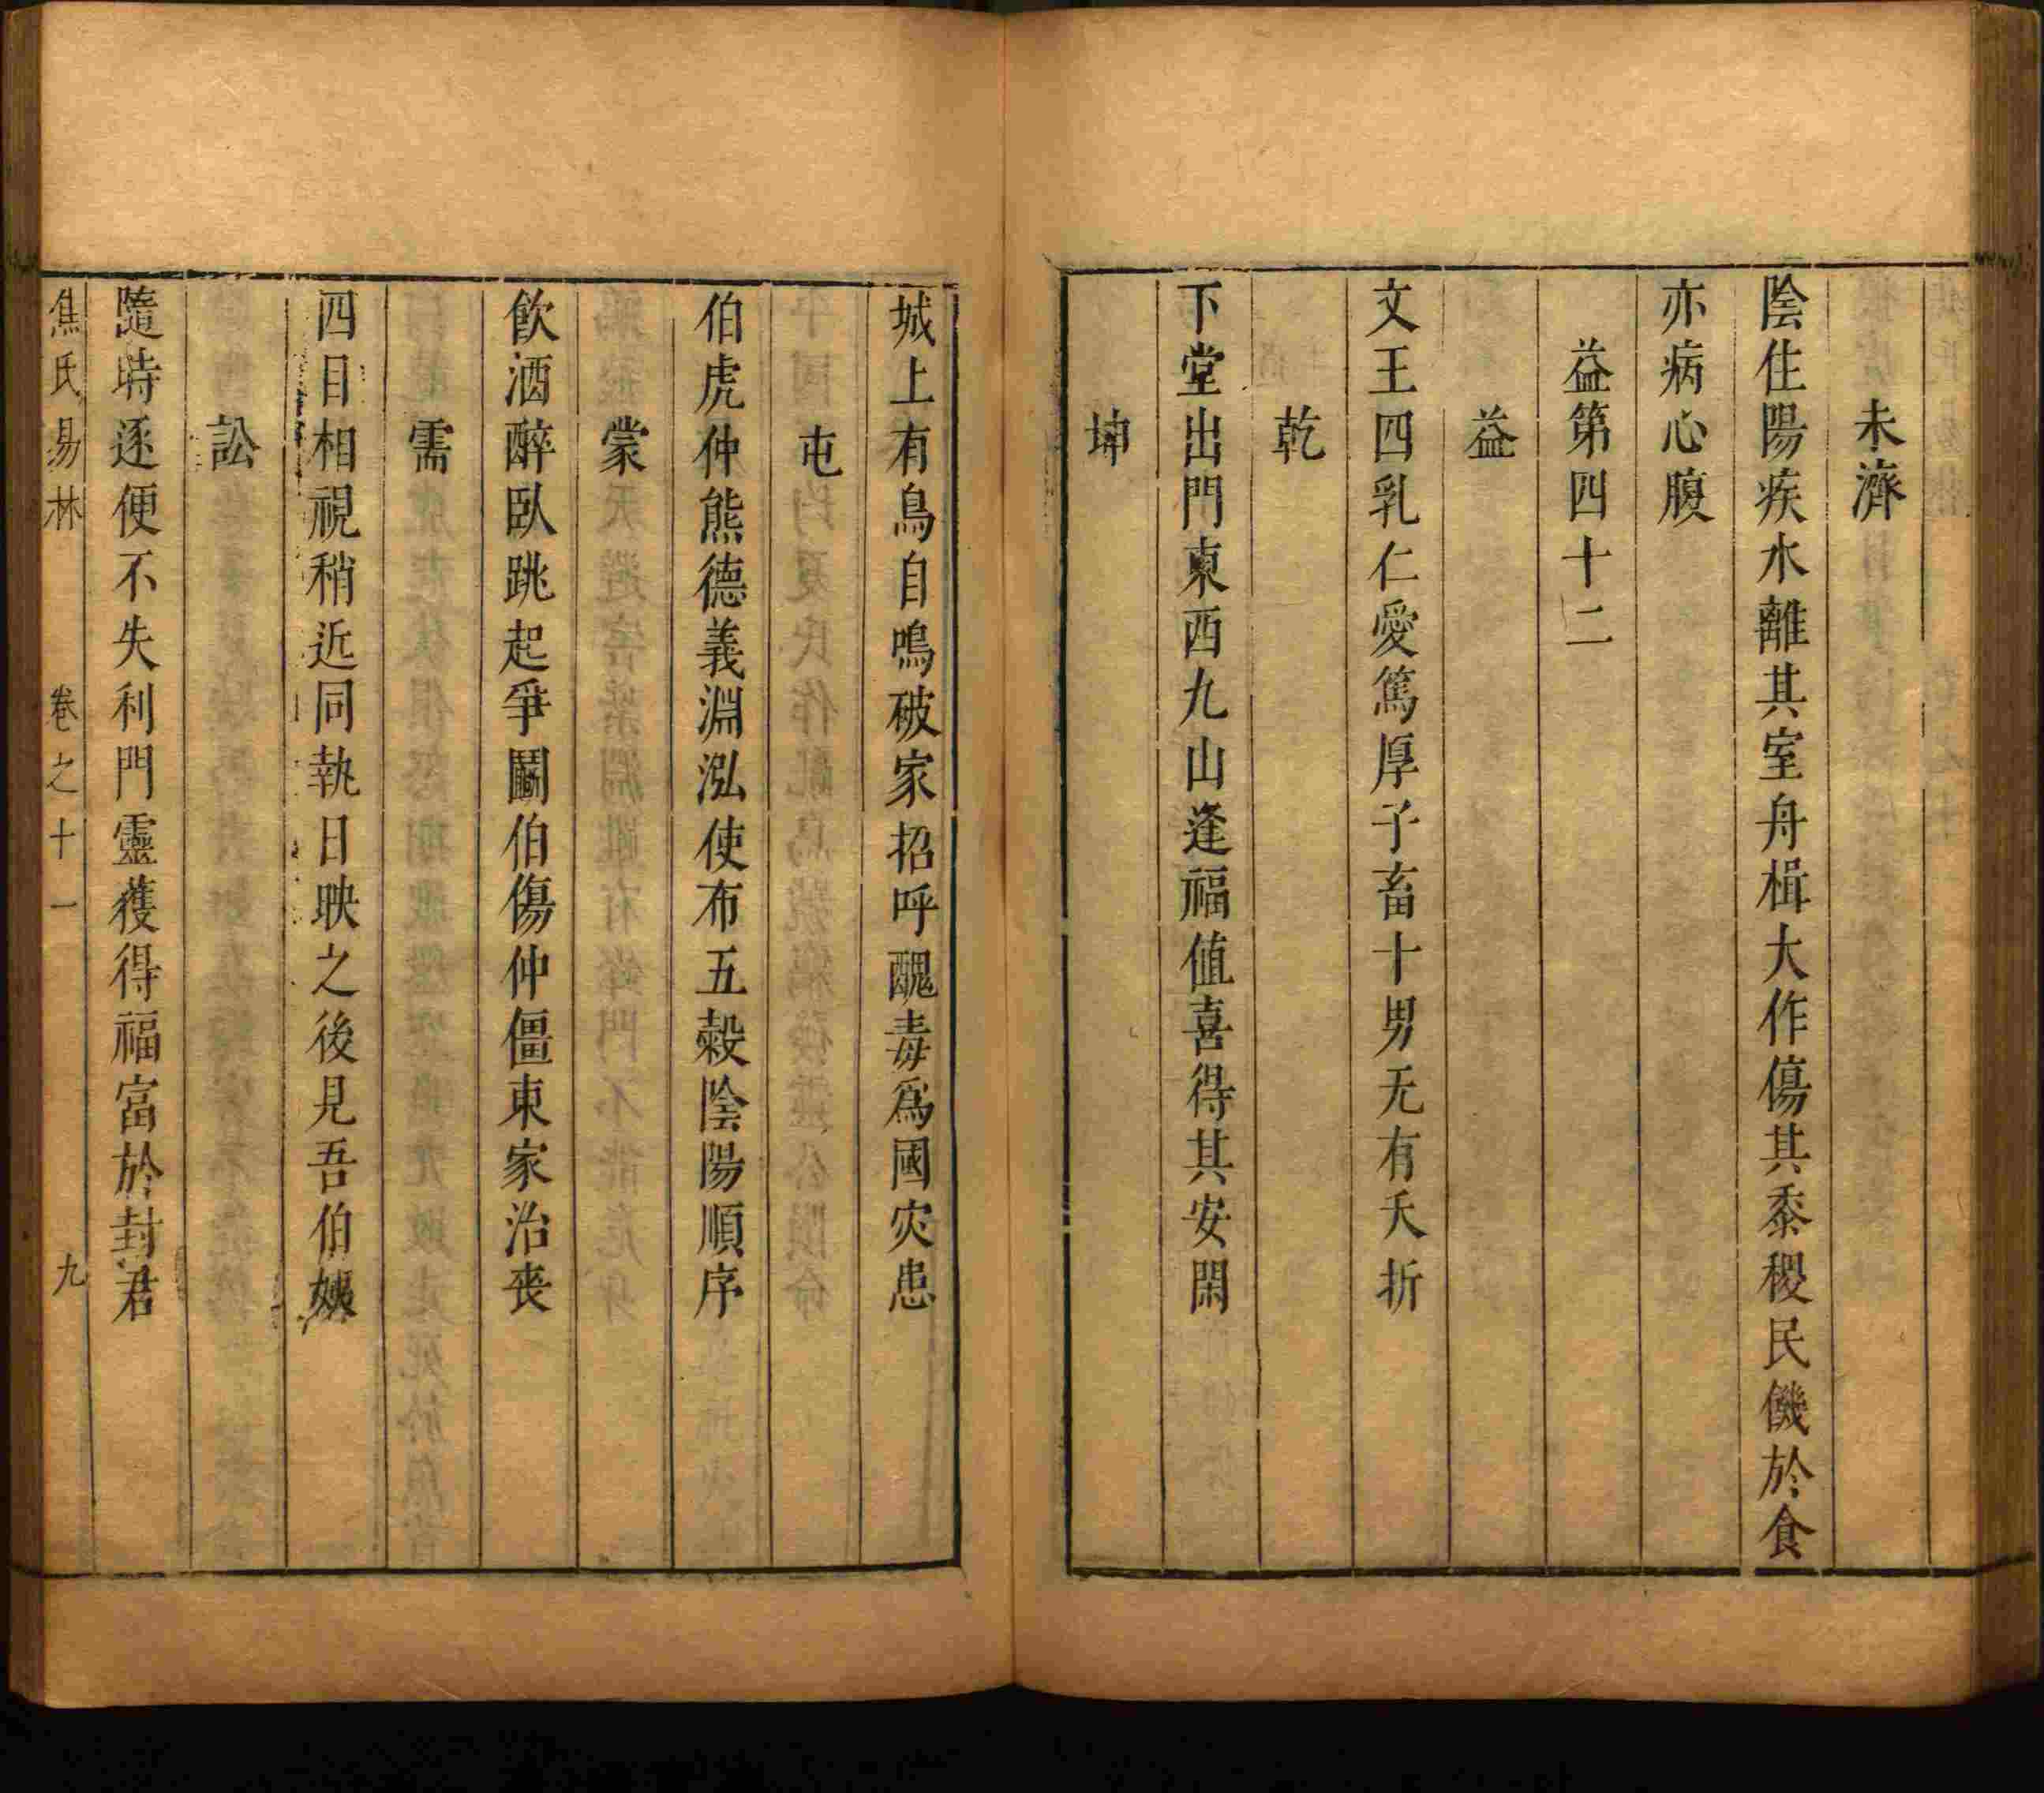 未濟
陰住陽疾水離其室舟楫大作傷其黍稷民饑於食
亦病心腹
益第四十二
益
文王四乳仁愛篤厚子畜十男无有夭折
乾
下堂出門東西九山逢福值喜得其安閑
坤
城上有烏自鳴破家招呼醜毒為國灾患
屯
伯虎仲熊德義淵泓使布五榖陰陽順序
蒙
飲酒醉臥跳起爭鬭伯傷仲僵東家治喪
需
四目相視稍近同執日昳之後見吾伯姨
訟
隨時逐便不失利門靈獲得福富於封君
焦氏易林 卷之十一 九